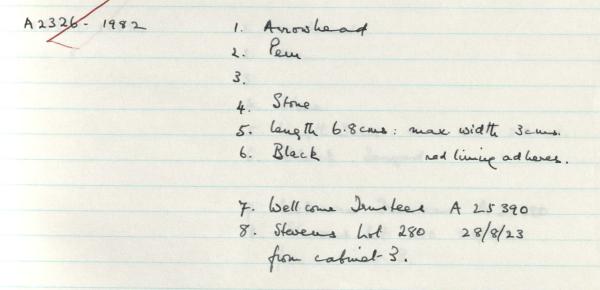 A2326-1982 1. Arrowhead
2. Peru
3.
4. Stone
5. length 6.8cms: max width 3cms.
6. Black red lining adheres.
7. Wellcome Trustees A 25390
8. Stevens Lot 280 28/8/23
from cabinet 3.